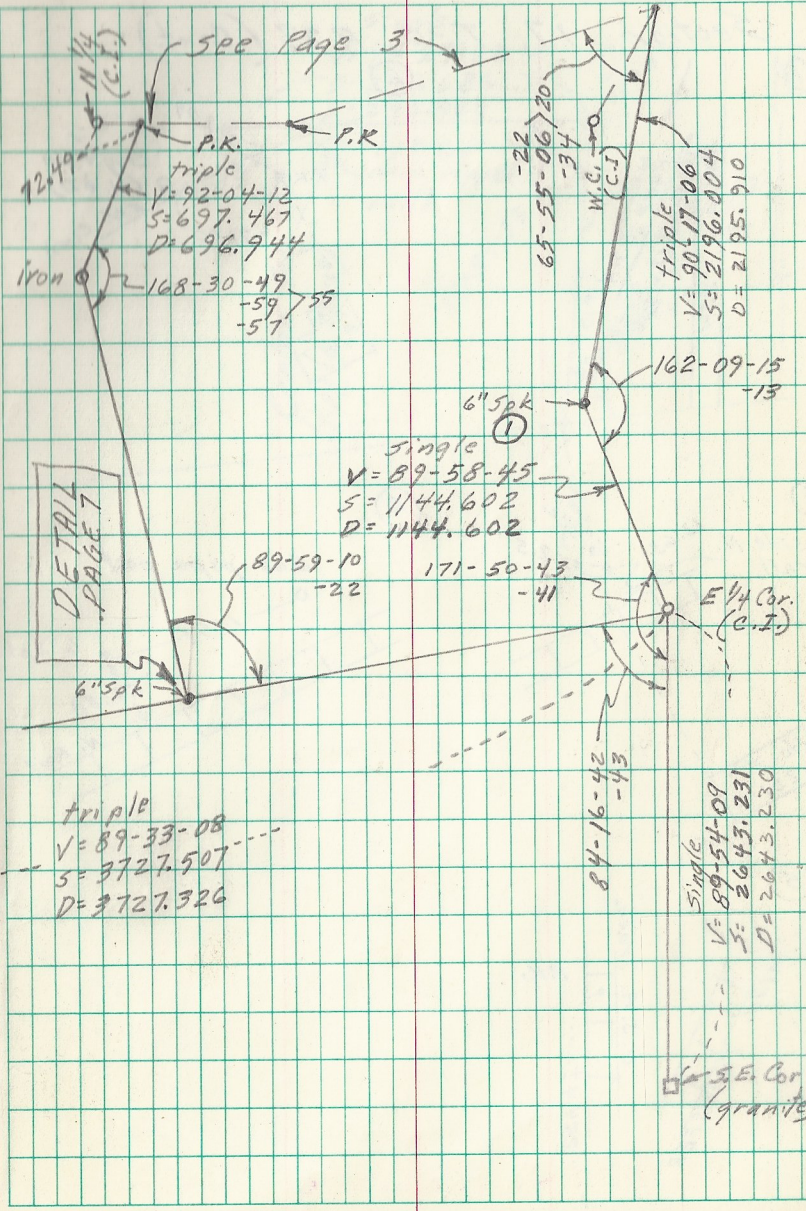 N 1/4
(C.I.)
See Page 3
72.49
P.K.
P.K
triple
V=92-04-12
S=697.467
D=696.944
iron
168-30-49
-59 > 55
-57
-22
65-55-06 > 20
-34
W.C.
(C.I)
triple
V=90-17-06
S=2196.004
D=2195.910
162-09-15
-13
6" Spk
1
Single
V=89-58-45
S=1144.602
D=1144.602
DETAIL
PAGE 7
89-59-10
-22
171-50-43
-41
E 1/4 Cor.
(C.I.)
6" Spk
84-16-42
-43
triple
V=89-33-08
S=3727.507
D=3727.326
Single
V=89-54-09
S=2643.231
D=2643.230
S.E. Cor
(granite